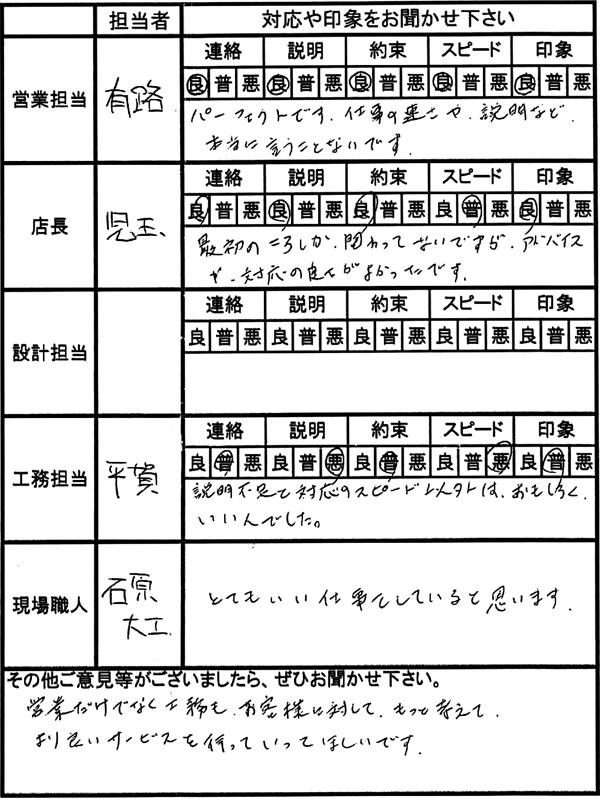 担当者 対応や印象をお聞かせ下さい
営業担当 有路
連絡 説明 約束 スピード 印象
良 普 悪 良 普 悪 良 普 悪 良 普 悪 良 普 悪
パーフェクトです。仕事の 早さや、説明など、
本当に言うことないです。
店長 児玉
連絡 説明 約束 スピード 印象
良 普 悪 良 普 悪 良 普 悪 良 普 悪 良 普 悪
最初のころしか、関わってないですが、アドバイス
や、対応の良さがよかったです。
設計担当
連絡 説明 約束 スピード 印象
良 普 悪 良 普 悪 良 普 悪 良 普 悪 良 普 悪
工務担当 平賀
連絡 説明 約束 スピード 印象
良 普 悪 良 普 悪 良 普 悪 良 普 悪 良 普 悪
説明不足と対応のスピード以外は、おもしろく、
いいんでした。
現場職人 石原
大工
とてもいい仕事をしていると思います。
その他ご意見等がございましたら、ぜひお聞かせ下さい。
営業だけでなく工務も、お客様に対して、もっと考えて、
より良いサービスを行っていってほしいです。